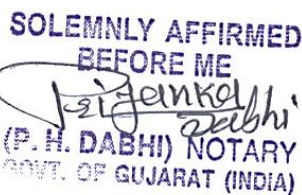 SOLEMNLY AFFIRMED
BEFORE ME
Priyanka
Dabhi
(P. H. DABHI) NOTARY
GOVT. OF GUJARAT (INDIA)